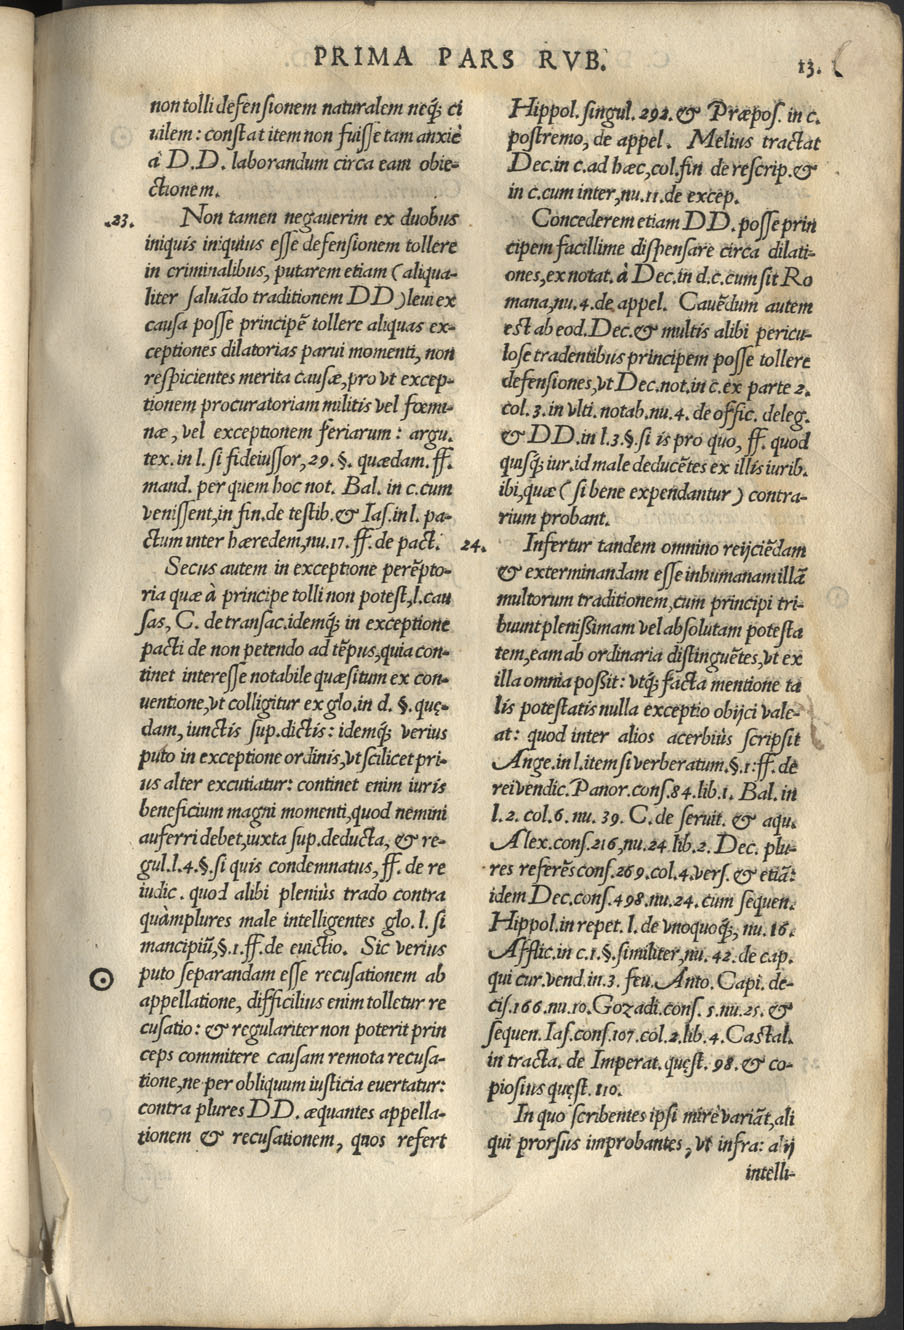 PRIMA PARS RVB.
13.
non tolli defensionem naturalem neq; ci
uilem: constat item non fuisse tam anxiè
à D.D. laborandum circa eam obie-
ctionem.
23.
Non tamen negauerim ex duobus
iniquis iniquius esse defensionem tollere
in criminalibus, putarem etiam (aliqua-
liter saluãdo traditionem DD) leui ex
causa posse principẽ tollere aliquas ex-
ceptiones dilatorias parui momenti, non
respicientes merita causæ, pro vt excep-
tionem procuratoriam militis vel fœmi-
næ, vel exceptionem feriarum: argu.
tex. in l. si fideiussor, 29. §. quædam. ff.
mand. per quem hoc not. Bal. in c. cum
venissent, in fin. de testib. & Ias. in l. pa-
ctum inter hæredem, nu. 17. ff. de pact.
Secus autem in exceptione perẽpto-
ria quæ à principe tolli non potest, l. cau
sas, C. de transac. idemq; in exceptione
pacti de non petendo ad tẽpus, quia con-
tinet interesse notabile quæsitum ex con-
uentione, vt colligitur ex glo. in d. §. quę-
dam, iunctis sup. dictis: idemq; verius
puto in exceptione ordinis, vt scilicet pri-
us alter excutiatur: continet enim iuris
beneficium magni momenti, quod nemini
auferri debet, iuxta sup. deducta, & re-
gul. l. 4. §. si quis condemnatus, ff. de re
iudic. quod alibi pleniùs trado contra
quàmplures male intelligentes glo. l. si
mancipiũ, §. 1. ff. de euictio. Sic verius
puto separandam esse recusationem ab
appellatione, difficilius enim tolletur re
cusatio: & regulariter non poterit prin
ceps commitere causam remota recusa-
tione, ne per obliquum iusticia euertatur:
contra plures DD. æquantes appella-
tionem & recusationem, quos refert
Hippol. singul. 292. & Præpos. in c.
postremo, de appel. Melius tractat
Dec. in c. ad hæc, col. fin de rescrip. &
in c. cum inter, nu. 11. de excep.
Concederem etiam DD. posse prin
cipem facillime dispensare circa dilati-
ones, ex notat. à Dec. in d. c. cum sit Ro
mana, nu. 4. de appel. Cauẽdum autem
est ab eod. Dec. & multis alibi pericu-
lose tradentibus principem posse tollere
defensiones, vt Dec. not. in c. ex parte 2.
col. 3. in vlti. notab. nu. 4. de offic. deleg.
& DD. in l. 3. §. si is pro quo, ff. quod
quisq; iur. id male deducẽtes ex illis iurib.
ibi, quæ (si bene expendantur) contra-
rium probant.
24.
Infertur tandem omnino reijciẽdam
& exterminandam esse inhumanam illã
multorum traditionem, cum principi tri-
buunt plenißimam vel absolutam potesta
tem, eam ab ordinaria distinguẽtes, vt ex
illa omnia poßit: vtq; facta mentione ta
lis potestatis nulla exceptio obijci vale-
at: quod inter alios acerbiùs scripsit
Ange. in l. item si verberatum. §. 1: ff. de
rei vendic. Panor. cons. 84. lib. 1. Bal. in
l. 2. col. 6. nu. 39. C. de seruit. & aqu.
Alex. cons. 216, nu. 24. lib. 2. Dec. plu-
res referẽs cons. 269. col. 4. vers. & etiã:
idem Dec. cons. 498. nu. 24. cum sequen.
Hippol. in repet. l. de vnoquoq;, nu. 16.
Afflic. in c. 1. §. similiter, nu. 42. de cap.
qui cur. vend. in. 3. feu. Anto. Capi. de-
cis. 166. nu. 10. Gozadi. cons. 5. nu. 25. &
sequen. Ias. cons. 107. col. 2. lib. 4. Castal.
in tracta. de Imperat. quęst. 98. & co-
piosius quęst. 110.
In quo scribentes ipsi mirè variãt, ali
qui prorsus improbantes, vt infra: alij
intelli-